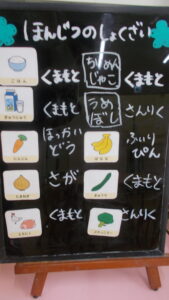 ほんじつのしょくざい
ごはん くまもと
ちりめん
じゃこ くまもと
ぎゅうにゅう くまもと
うめ
ぼし さんりく
にんじん ほっかい
どう
バナナ ふぃり
ぴん
たまねぎ さが
きゅうり くまもと
くまもと
さんりく